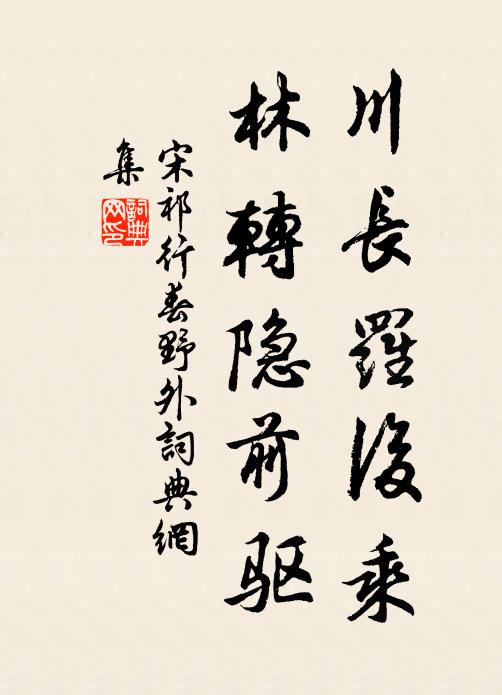 川長羅後乘
林轉隐前驱
宋祁行春野外詞典網
集
詞典网印